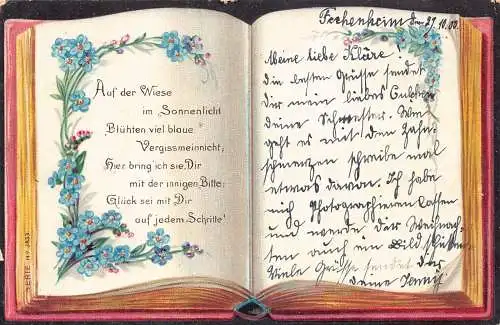 Auf der Wiese
im Sonnenlicht
Blühten viel blaue
Vergissmeinnicht;
Hier bring ich sie Dir
mit der innigen Bitte:
Glück sei mit Dir
auf jedem Schritte!
SERIE. No. 3433.
Fechenheim den 27.10.00.
Meine liebe Kläre!
die besten Grüsse sendet
Dir mein liebes
deine Schwester. Wie
geht es mit den Zahn-
schmerzen schreibe mal
etwas davon. Ich habe
mich Photographieren lassen
und werde dir Weihnach-
ten auch ein Bild schicken
Viele Grüsse sendet dir
deine